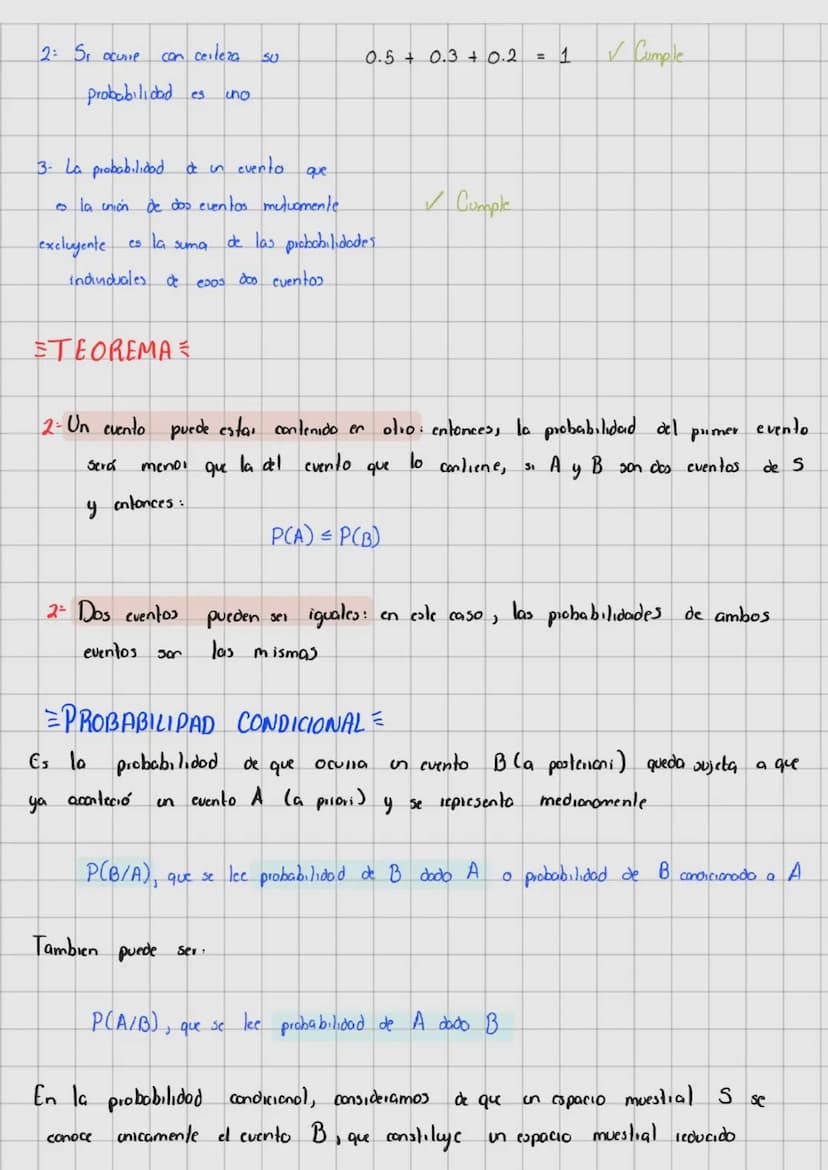 2: Si ocurre con certeza su 0.5 + 0.3 + 0.2 = 1 ✓ Cumple
probabilidad es uno
3- La probabilidad de un evento que
es la unión de dos eventos mutuamente ✓ Cumple
excluyente es la suma de las probabilidades
individuales de esos dos eventos
TEOREMA
2- Un evento puede estar contenido en otro: entonces, la probabilidad del primer evento
será menor que la del evento que lo contiene, si A y B son dos eventos de S
y entonces:
P(A) ≤ P(B)
2- Dos eventos pueden ser iguales: en este caso, las probabilidades de ambos
eventos son las mismas
PROBABILIDAD CONDICIONAL
Es la probabilidad de que ocurra un evento B (a posteriori) queda sujeta a que
ya aconteció un evento A (a priori) y se representa
P(B/A), que se lee probabilidad de B dado A o probabilidad de B condicionado a A
Tambien puede ser:
P(A/B), que se lee probabilidad de A dado B
En la probabilidad condicional, consideramos de que un espacio muestral S se
conoce unicamente el evento B, que constituye un espacio muestral reducido